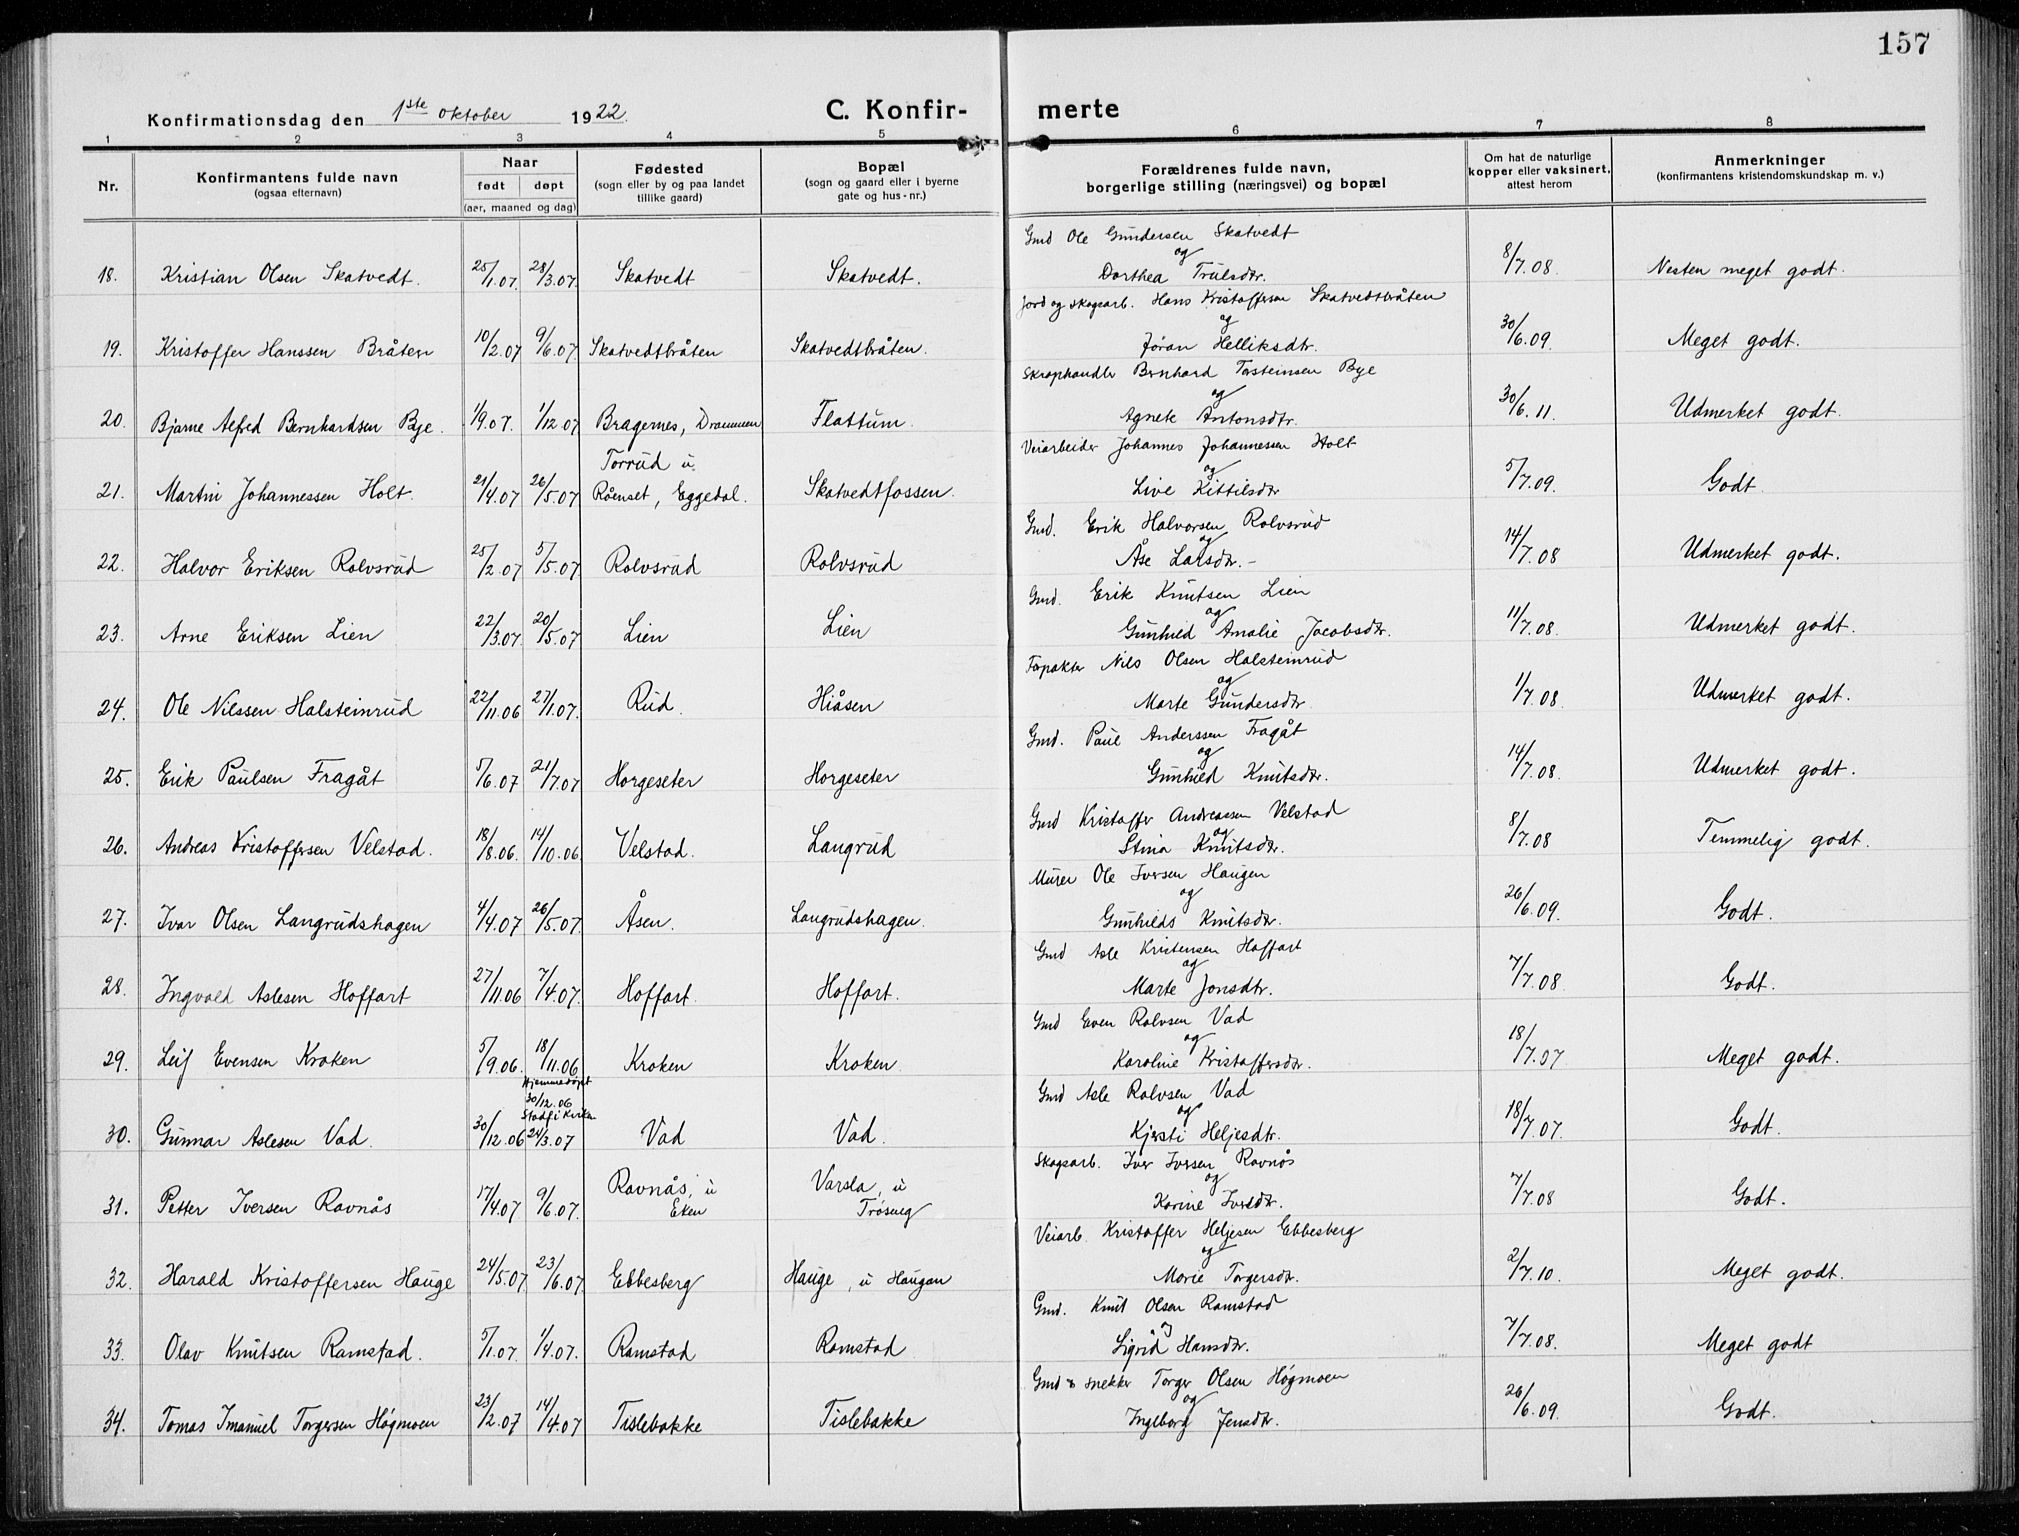 157
Konfirmationsdag den 1ste oktober 1922.
C. Konfir- merte
1 2 3 4 5 6 7 8
Nr.
Konfirmantens fulde navn
(ogsaa efternavn)
Naar
født døpt
(aar, maaned og dag)
Fødested
(sogn eller by og paa landet
tillike gaard)
Bopæl
(sogn og gaard eller i byerne
gate og hus-nr.)
Forældrenes fulde navn,
borgerlige stilling (næringsvei) og bopæl
Om hat de naturlige
kopper eller vaksinert,
attest herom
Anmerkninger
(konfirmantens kristendomskundskap m. v.)
Gmd Ole Gundersen Skatvedt
og
18. Kristian Olsen Skatvedt. 25/1.07. 28/3.07. Skatvedt Skatvedt. Dorthea Trulsdtr. 8/7.08. Nesten meget godt.
Jord og skogsarb. Hans Kristoffersen Skatvedtbråten
og
19. Kristoffer Hanssen Bråten 10/2.07 9/6.07. Skatvedtbråten Skatvedtbråten. Jøran Helliksdtr. 30/6.09. Meget godt.
Skraphandler Bernhard Torsteinsen Bye
og
20. Bjarne Alfred Bernhardsen Bye. 1/9.07. 1/12.07 Bragernes, Drammen Flattum. Agnete Antonsdtr. 30/6.11. Udmerket godt.
Veiarbeider Johannes Johannessen Holt
Torrud u.
og
21. Martin Johannessen Holt. 21/4.07 26/5.07 Råenset, Eggedal. Skatvedtfossen. Live Kittilsdtr 5/7.09. Godt.
Gmd. Erik Halvorsen Rolvsrud
og
22. Halvor Eriksen Rolvsrud 25/2.07 5/5.07. Rolvsrud Rolvsrud Åse Larsdtr.- 14/7.08 Udmerket godt.
Gmd. Erik Knutsen Lien
og
23. Arne Eriksen Lien 22/3.07. 20/5.07 Lien Lien Gunhild Amalie Jacobsdtr. 11/7.08. Udmerket godt.
Forpakter Nils Olsen Halsteinrud
og
24. Ole Nilssen Halsteinrud 22/11.06 27/1.07. Rud. Hiåsen Marte Gundersdtr. 1/7.08. Udmerket godt.
Gmd. Paul Anderssen Fragåt
og
25. Erik Paulsen Fragåt 5/6.07 21/7.07 Horgeseter Horgeseter Gunhild Knutsdtr. 14/7.08. Udmerket godt.
Gmd Kristoffer Andreassen Velstad
og
26. Andreas Kristoffersen Velstad. 18/8.06. 14/10.06. Velstad. Langrud Stina Knutsdtr. 8/7.08 Temmelig godt.
Murer Ole Iversen Haugen
og
27. Ivar Olsen Langrudshagen 4/4.07 26/5.07. Åsen. Langrudshagen. Gunhilds Knutsdtr. 26/6.09. Godt.
Gmd Asle Kristensen Hoffart
og
28. Ingvald Aslesen Hoffart 27/11.06 7/4.07. Hoffart. Hoffart. Marte Jonsdtr. 7/7.08. Godt.
Gmd Even Rolvsen Vad
og
29. Leif Evensen Kroken 5/9.06. 18/11.06. Kroken Kroken. Karoline Kristoffersdtr. 18/7.07 Meget godt.
Hjemmedøpt
30/12.06
Stadf. i Kirken
Gmd Asle Rolvsen Vad
og
30. Gunnar Aslesen Vad. 30/12.06 24/3.07 Vad Vad. Kjersti Heljesdtr. 18/7.07. Godt.
Skogsarb. Iver Iversen Ravnås
Ravnås, u Varsla, u
og
31. Petter Iversen Ravnås 17/4.07 9/6.07. Eken Karine Iversdtr. 7/7.08 Godt.
Veiarb. Kristoffer Heljesen Ebbesberg
og
32. Harald Kristoffersen Hauge 24/5.07 23/6.07. Ebbesberg Hauge, u Haugan Marie Torgersdtr. 2/7.10. Meget godt.
Gmd. Knut Olsen Ramstad
og
33. Olav Knutsen Ramstad. 5/1.07. 1/4.07. Ramstad Ramstad Sigrid Hansdtr. 7/7.08. Meget godt
Gmd & snekker Torger Olsen Høgmoen
og
34. Tomas Imanuel Torgersen Høgmoen 23/2.07 14/4.07 Tislebakke Tislebakke Ingeborg Jensdtr. 26/6.09. Godt.